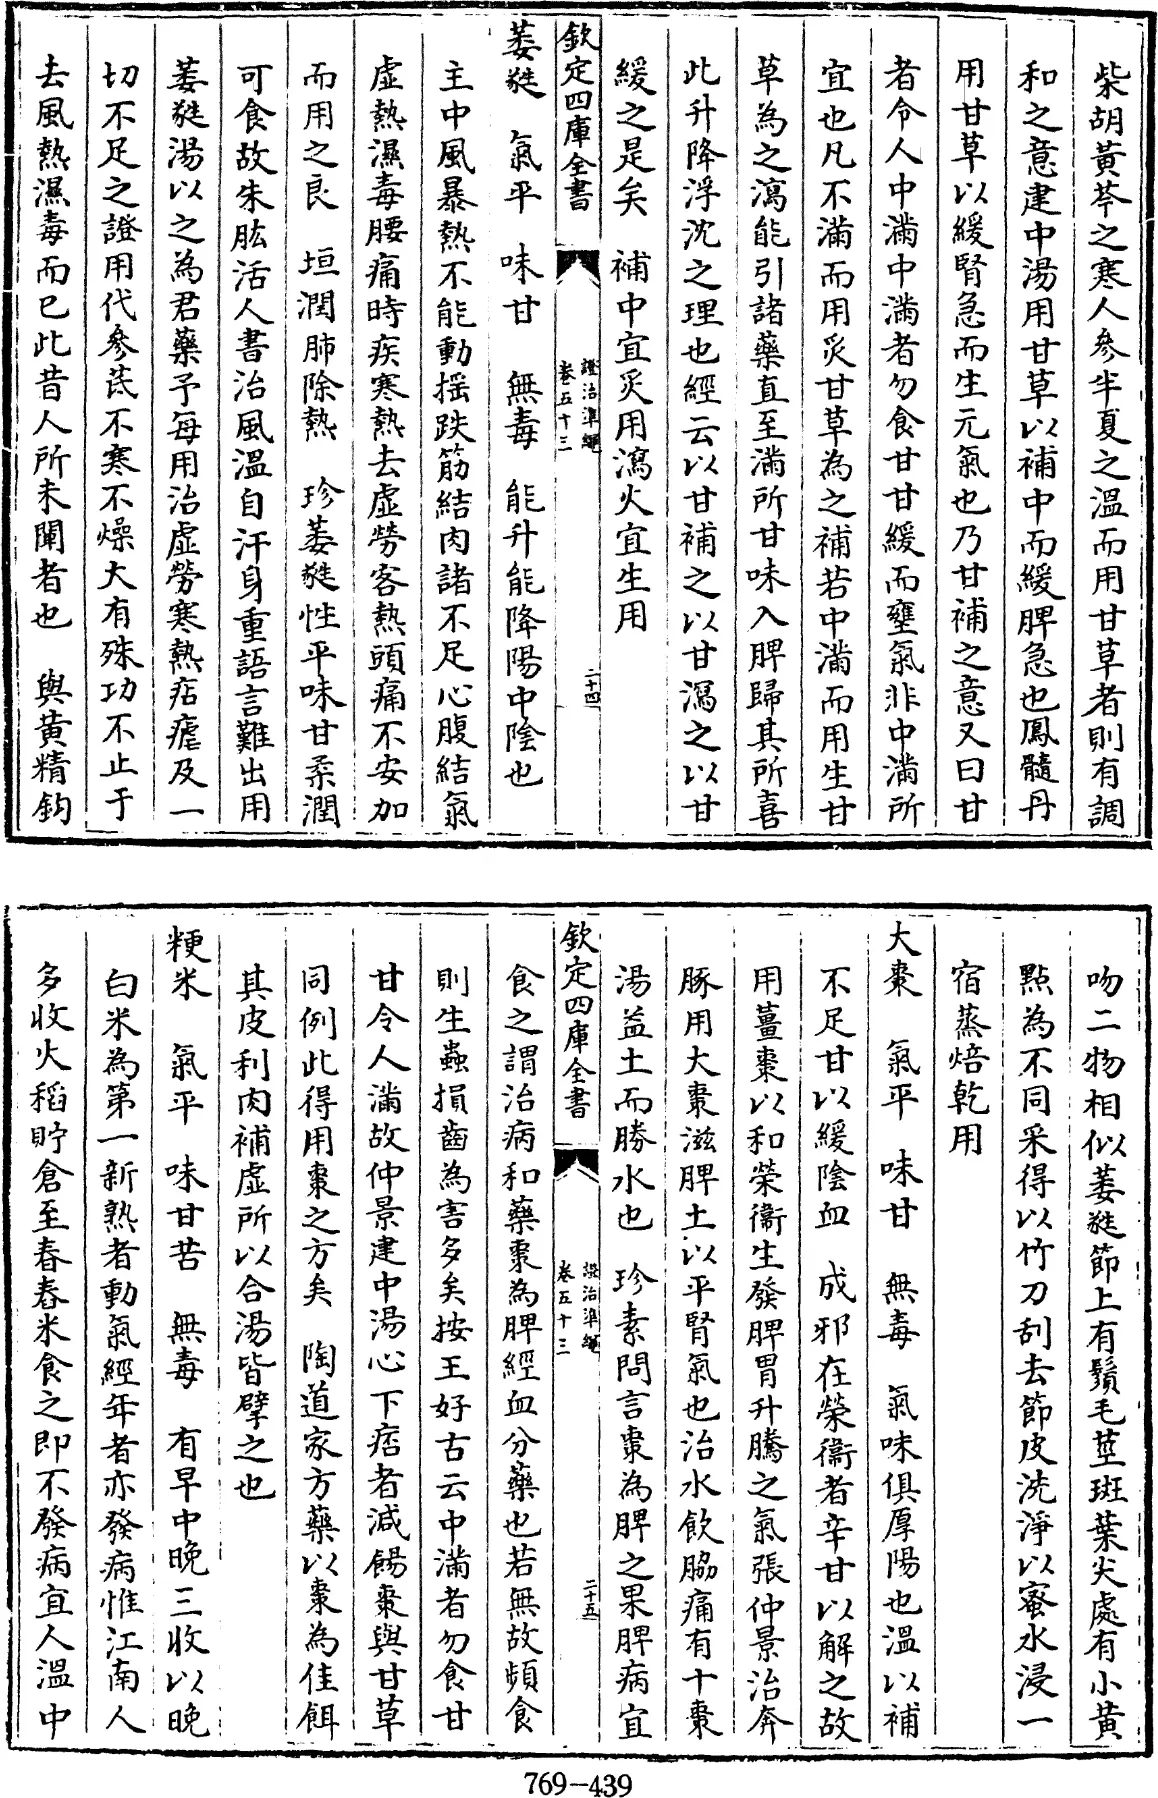 柴胡黃芩之寒人參半夏之溫而用甘草者則有調
和之意建中湯用甘草以補中而緩脾急也鳳髓丹
用甘草以緩腎急而生元氣也乃甘補之意又曰甘
者令人中滿中滿者勿食甘甘緩而壅氣非中滿所
宜也凡不滿而用炙甘草為之補若中滿而用生甘
草為之瀉能引諸藥直至滿所甘味入脾歸其所喜
此升降浮沈之理也經云以甘補之以甘瀉之以甘
緩之是矣 補中宜炙用瀉火宜生用
欽定四庫全書 證治準繩 卷五十三 二十四
萎蕤 氣平 味甘 無毒 能升能降陽中陰也
主中風暴熱不能動搖跌筋結肉諸不足心腹結氣
虛熱濕毒腰痛時疾寒熱去虛勞客熱頭痛不安加
而用之良 垣潤肺除熱 珍萎蕤性平味甘柔潤
可食故朱肱活人書治風溫自汗身重語言難出用
萎蕤湯以之為君藥予每用治虛勞寒熱痁瘧及一
切不足之證用代參芪不寒不燥大有殊功不止于
去風熱濕毒而已此昔人所未闡者也 與黃精鉤
吻二物相似萎蕤節上有鬚毛莖斑葉尖處有小黃
點為不同采得以竹刀刮去節皮洗淨以蜜水浸一
宿蒸焙乾用
大棗 氣平 味甘 無毒 氣味俱厚陽也溫以補
不足甘以緩陰血 成邪在榮衞者辛甘以解之故
用薑棗以和榮衞生發脾胃升騰之氣張仲景治奔
豚用大棗滋脾土以平腎氣也治水飲脇痛有十棗
湯益土而勝水也 珍素問言棗為脾之果脾病宜
欽定四庫全書 證治準繩 卷五十三 二十五
食之謂治病和藥棗為脾經血分藥也若無故頻食
則生蟲損齒為害多矣按王好古云中滿者勿食甘
甘令人滿故仲景建中湯心下痞者減餳棗與甘草
同例此得用棗之方矣 陶道家方藥以棗為佳餌
其皮利肉補虛所以合湯皆擘之也
粳米 氣平 味甘苦 無毒 有早中晚三收以晚
白米為第一新熟者動氣經年者亦發病惟江南人
多收火稻貯倉至春舂米食之即不發病宜人溫中
769-439